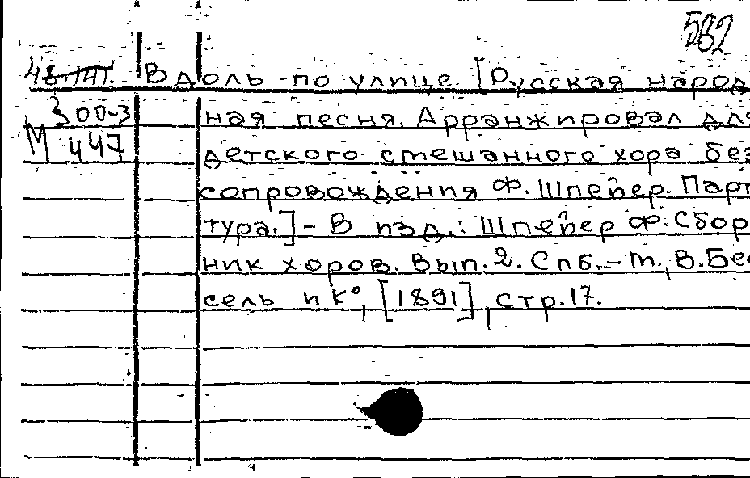 582
Вдоль по улице. [Русская народ
300-3
ная песня. Арранжировал для
М 447
детского смешанного хора без
сопровождения Ф. Шпейер. Парти
тура.] - В изд.: Шпейер Ф. Сбор
ник хоров. Вып. 2. Спб. - м., В. Бес
сель и К°, [1891], стр. 17.